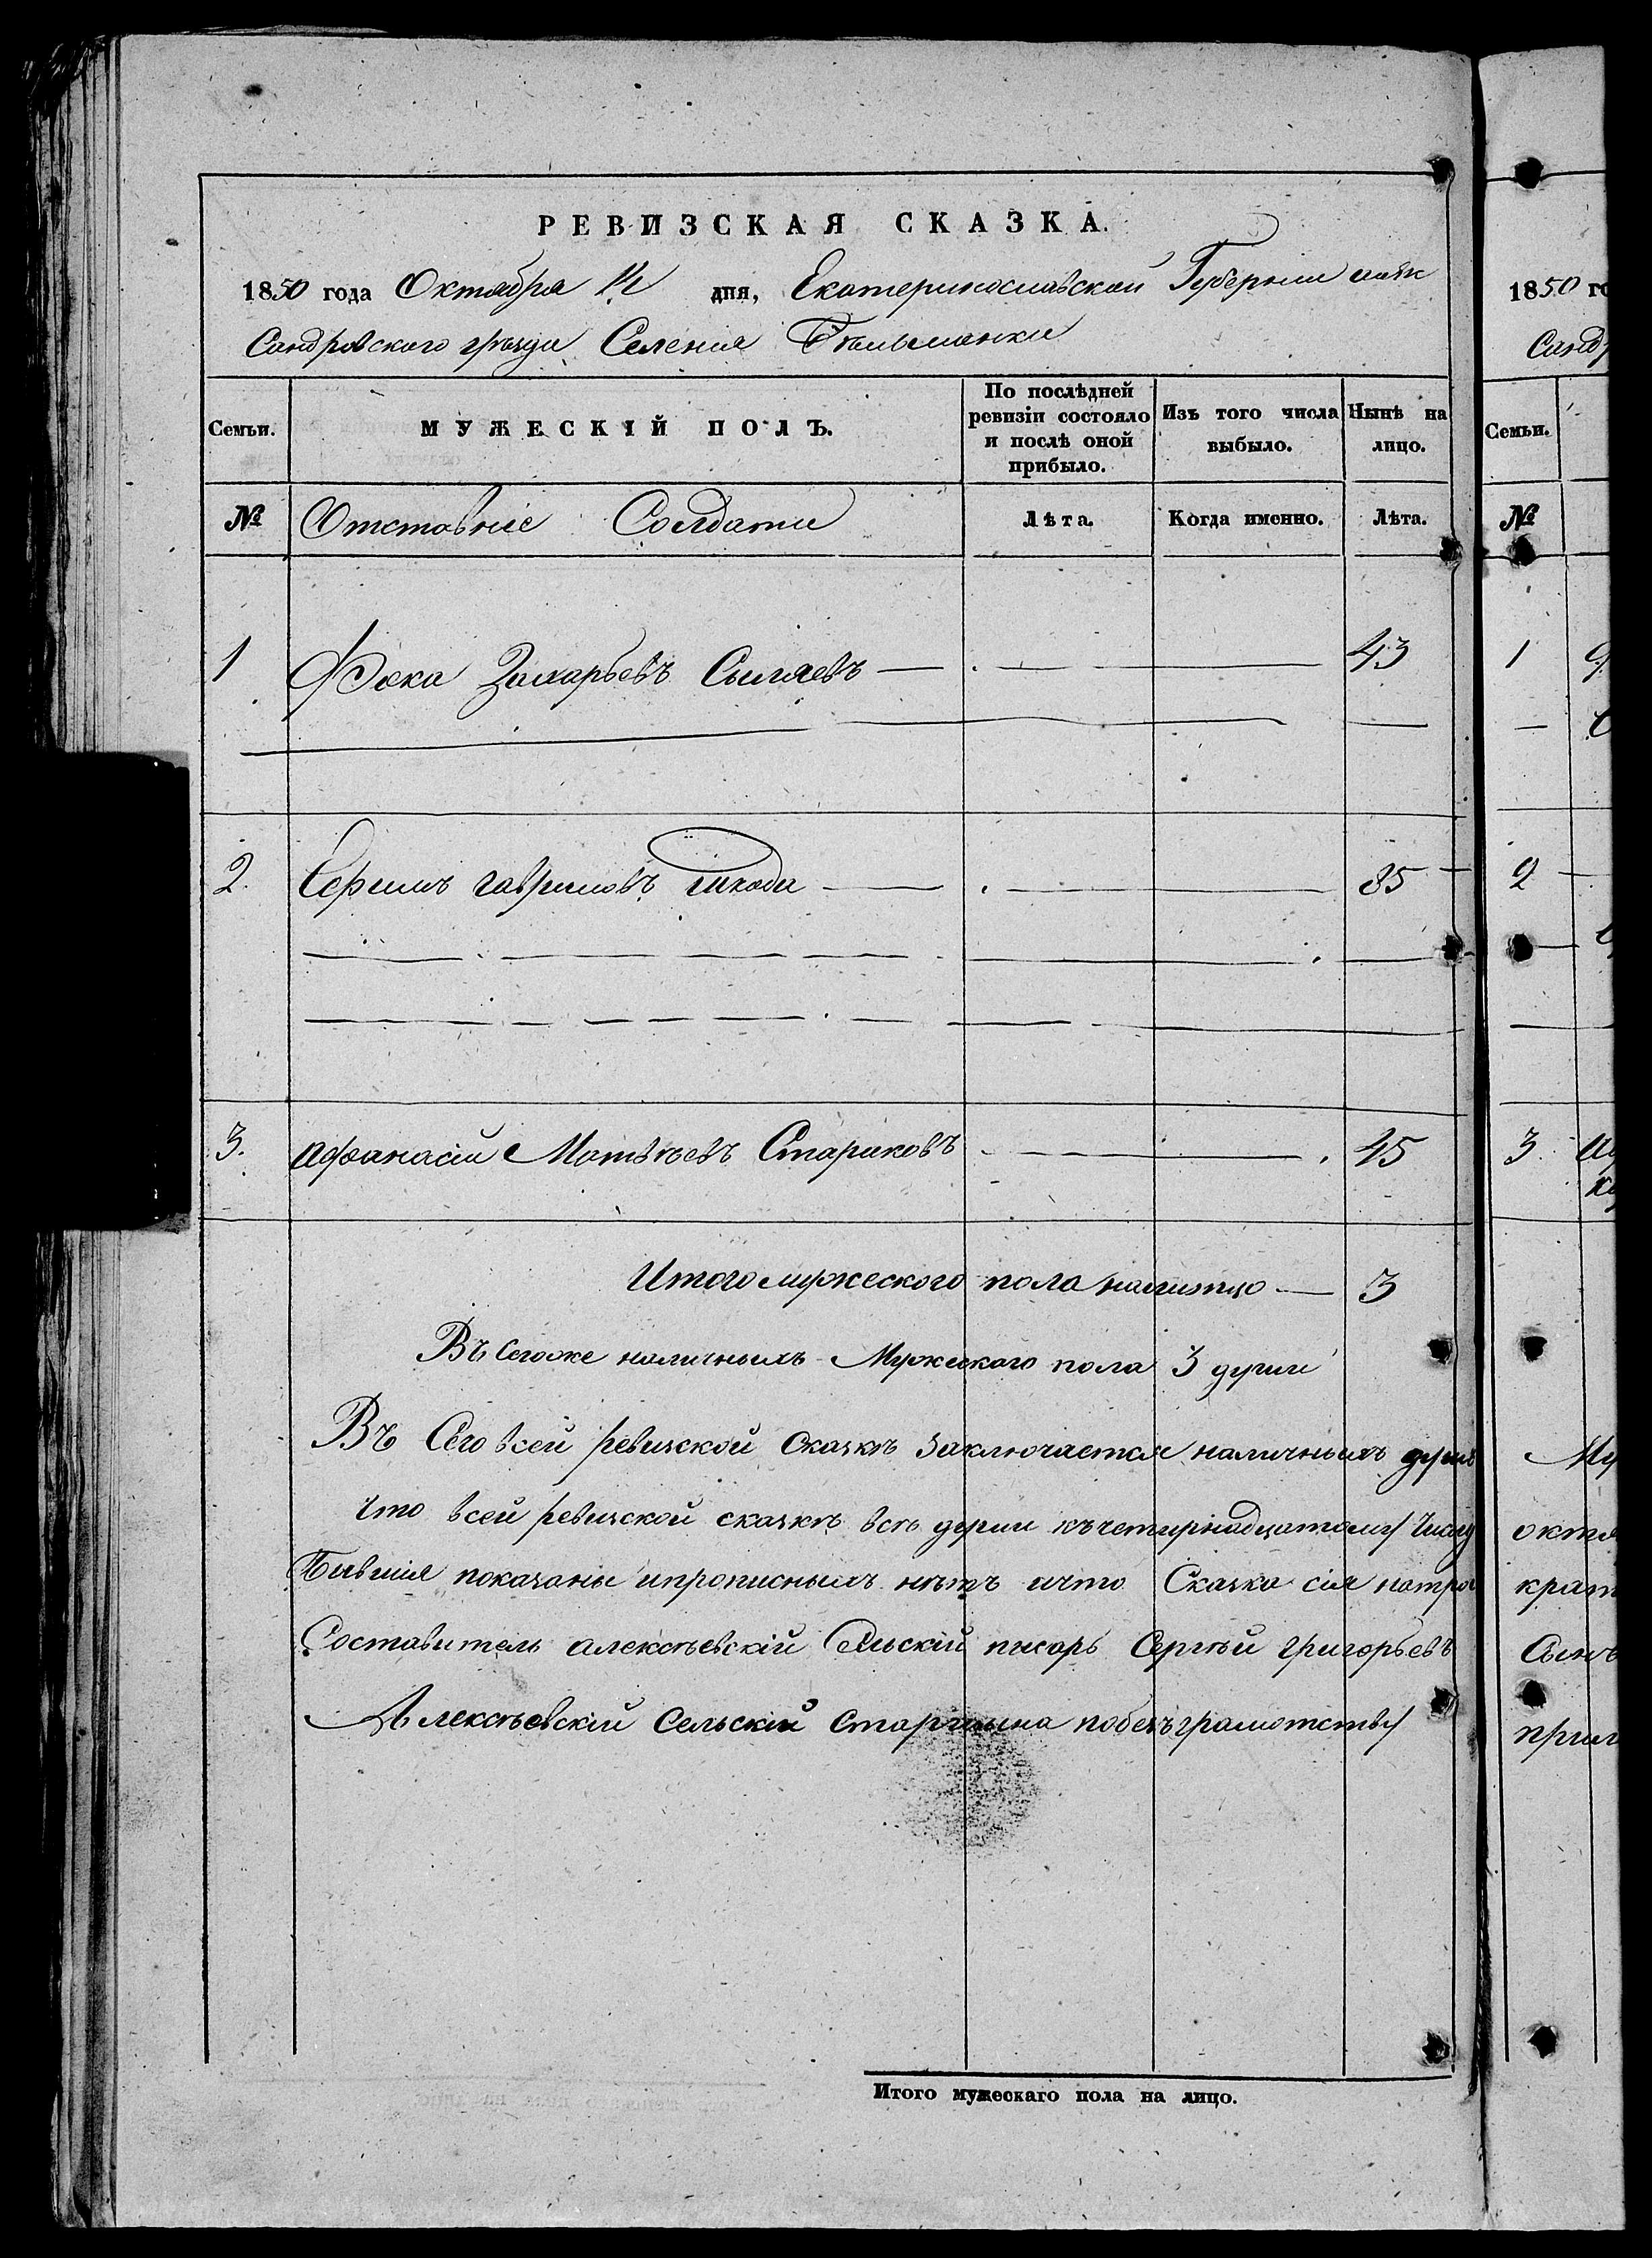 РЕВИЗСКАЯ СКАЗКА.
1850 года Октября 14 дня, Екатеринославской Губернии алек
Сандровского уѣзда Селения Бѣльманки
Семьи. МУЖЕСКІЙ ПОЛЪ. По послѣдней ревизіи состояло и послѣ оной прибыло. Изъ того числа выбыло. Нынѣ на лицо.
№ Отставніе Солдати Лѣта. Когда именно. Лѣта.
1 Фока Захарьевъ Сыляевъ 43
2. Ефимъ гавриловъ шкода 35
3. Афанасій Матвѣевъ Стариковъ 45
Итого мужеского пола налицо 3
Въ Сегоже наличныхъ Мужеского пола 3 души
Въ Сего всей ревизской Сказкѣ Заключается наличныхъ душъ
Что всей ревизской сказкѣ всѣ души кчетирнадцатому Числу
Бывшія показаны ипрописныхъ нѣтъ ичто Сказка сія натро
Составитель алексѣевскій Сельскій писарь Сергѣй григорьевъ
Алексѣевскій Сельскій Старшина побезъграмотству
Итого мужескаго пола на лицо.
1850 го
Санд
Семьи.
№
1
2
3
Му
октя
крат
Сынъ